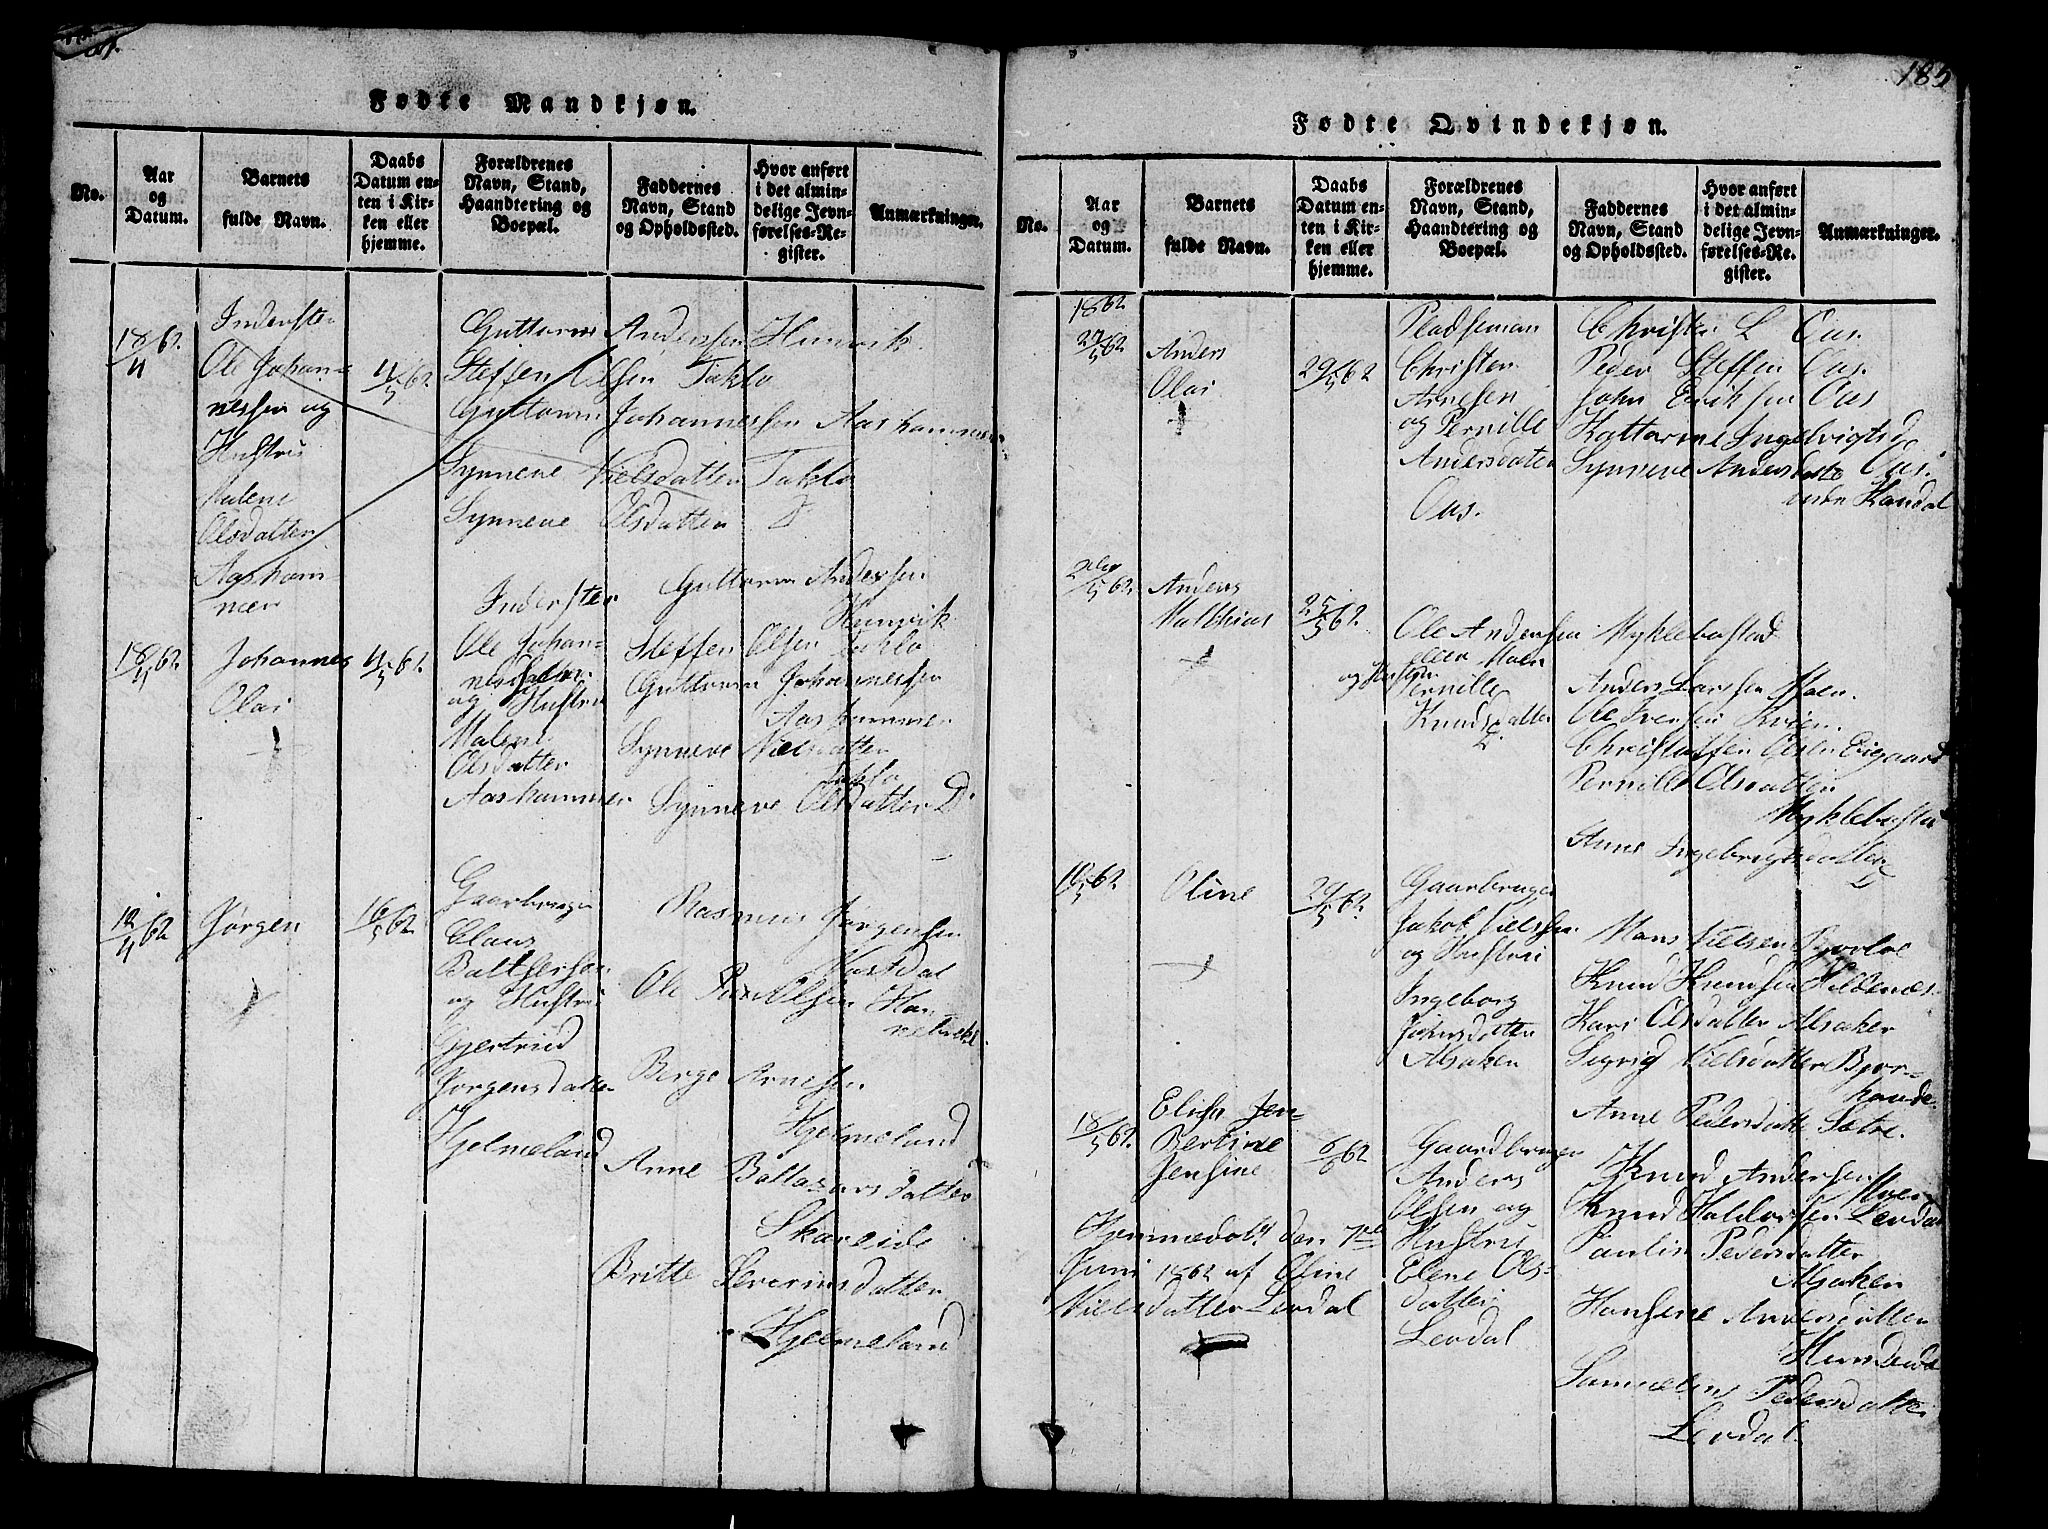 Fødte Mandkjøn.
No.
Aar
og
Datum.
Barnets
fulde Navn.
Daabs
Datum en-
ten i Kir-
ken eller
hjemme.
Forældrenes
Navn, Stand,
Haandtering og
Boepæl.
Faddernes
Navn, Stand
og Opholdssted.
Hvor anført
i det almin-
delige Jevn-
førelses-Re-
gister.
Anmærkninger.
18/4 62.
Indersten
Ole Johan-
nessen og
Hustru
Malene
Olsdatter
Aasham-
mer
4/5 62
Guttorm Andersen Hennvik
Steffen Olsen Taklo
Guttorm Johannessen Aashammer
Synneve Nielsdatter Taklo
Synneve Olsdatter D
18/4 62.
Johannes
Olai
4/5 62.
Indersten
Ole Johan-
nessen
og Hustru
Malene
Olsdatter
Aashammer
Guttorm Andersen
Hennvik
Steffen Olsen Taklo
Guttorm Johannessen
Aashammer
Synneve Nielsdatter
Taklo
Synneve Olsdatter D
12/4 62
Jørgen
16/5 62.
Gaarbruger
Claus
Baltserson
og Hustru
Gjertrud
Jørgensdatter
Hjelmeland
Rasmus Jørgensen
Ole Olsen
Berge Arnesen
Hjelmeland
Anne Baltasarsdatter
Skareide
Britte Severinsdatter
Hjelmeland
185
Fødte Qvindekjøn.
No.
Aar
og
Datum.
Barnets
fulde Navn.
Daabs
Datum en-
ten i Kir-
ken eller
hjemme.
Forældrenes
Navn, Stand,
Haandtering og
Boepæl.
Faddernes
Navn, Stand
og Opholdssted.
Hvor anført
i det almin-
delige Jevn-
førelses-Re-
gister.
Anmærkninger.
1862
27/5 62
Anders
Olai
29/5 62
Pladseman
Christen
Arnesen
og Pernille
Andersdatter
Aas.
Christen L Aas.
Peder Steffen Aas.
John Eriksen Aas
Kattarine Ingelvigtsd
Synneve Andersdatte
Handal
Anders
Matthias
25/5 62.
Ole Andersen
Moen
og Hustru
Pernille
Knudsdatter
Myklebustad
Anders Larsen Moen.
Ole Iversen Kvien.
Christoffen Olsen Eigaard
Pernille Olsdatter
Myklebusta
Anne Ingebrigtsdatter
10/5 62
Oline
29/5 62.
Gaarbruger
Jakob Nielsen
og Hustru
Ingeborg
Johnsdatter
Alsaker
Mons Nielsen
Knud Knudsen Hildenes
Kari Olsdatter Alsaker
Sigrid Nielsdatter Bjør-
kaude
Anne Pedersdatte Sætre.
18/5 62.
Elisa Jen-
Bertine
Jensine
6/6 62
Gaardbruger
Anders
Olsen og
Hustru
Elene Ols-
datter
Levdal
Knud Andersen
Moen
Knud Haldorsen Levdal
Paulin Pedersdatter
Alsaker
Hansine Andersdatter
Hundeide
Samueline Pedersdatte
Levdal.
Hjemmedøbt den 7de
Juni 1862 af Oline
Nielsdatter Levdal